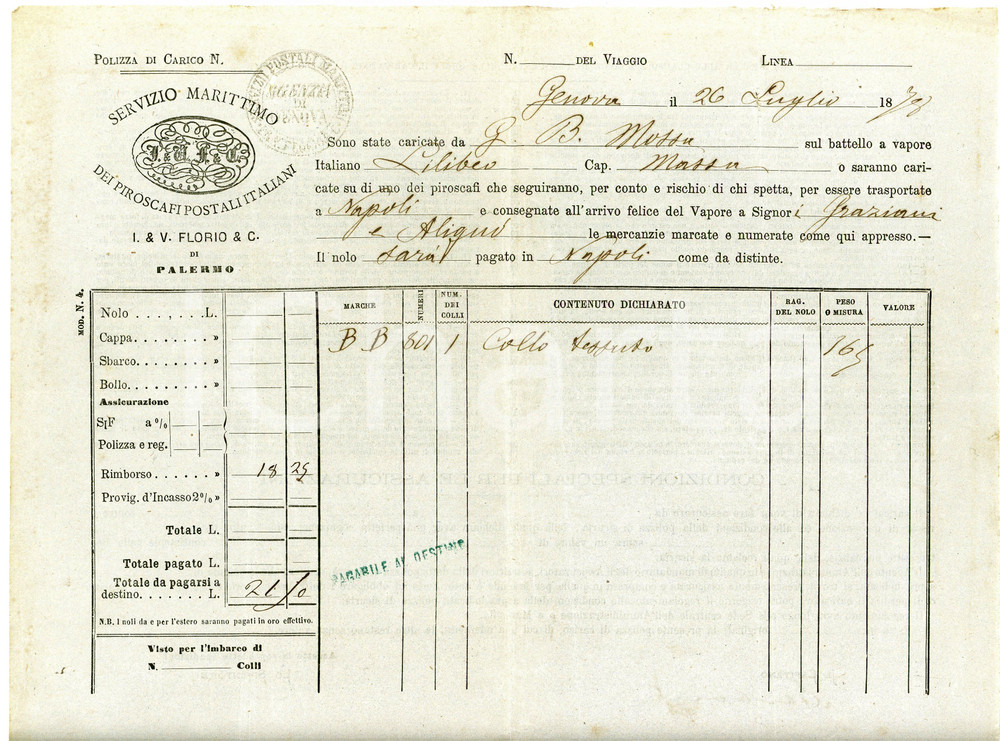 Polizza di Carico N.
N. del Viaggio Linea
SERVIZIO MARITTIMO
I.&V.F.&C.
DEI PIROSCAFI POSTALI ITALIANI
I. & V. FLORIO & C.
DI
PALERMO
Genova il 26 Luglio 1878
Sono state caricate da G. B. Mossa sul battello a vapore
Italiano Lilibeo Cap. Massa o saranno cari-
cate su di uno dei piroscafi che seguiranno, per conto e rischio di chi spetta, per essere trasportate
a Napoli e consegnate all'arrivo felice del Vapore a Signori Graziani
e le mercanzie marcate e numerate come qui appresso.—
Il nolo sarà pagato in Napoli come da distinte.
MOD. N. 4.
MARCHE NUMERI NUM. DEI COLLI CONTENUTO DICHIARATO RAG. DEL NOLO PESO O MISURA VALORE
BB 801 1 Collo tessuto 165
Nolo . . . . . . . L.
Cappa. . . . . . . . »
Sbarco. . . . . . . . »
Bollo. . . . . . . . »
Assicurazione
S[F a %
Polizza e reg.
Rimborso. . . . . . » 18 25
Provig. d'Incasso 2% »
Totale L.
Totale pagato L.
Totale da pagarsi a
destino. . . . . . . L. 21 10
PAGABILE AL DESTINO
N.B. I noli da e per l'estero saranno pagati in oro effettivo.
Visto per l'imbarco di
N. Colli